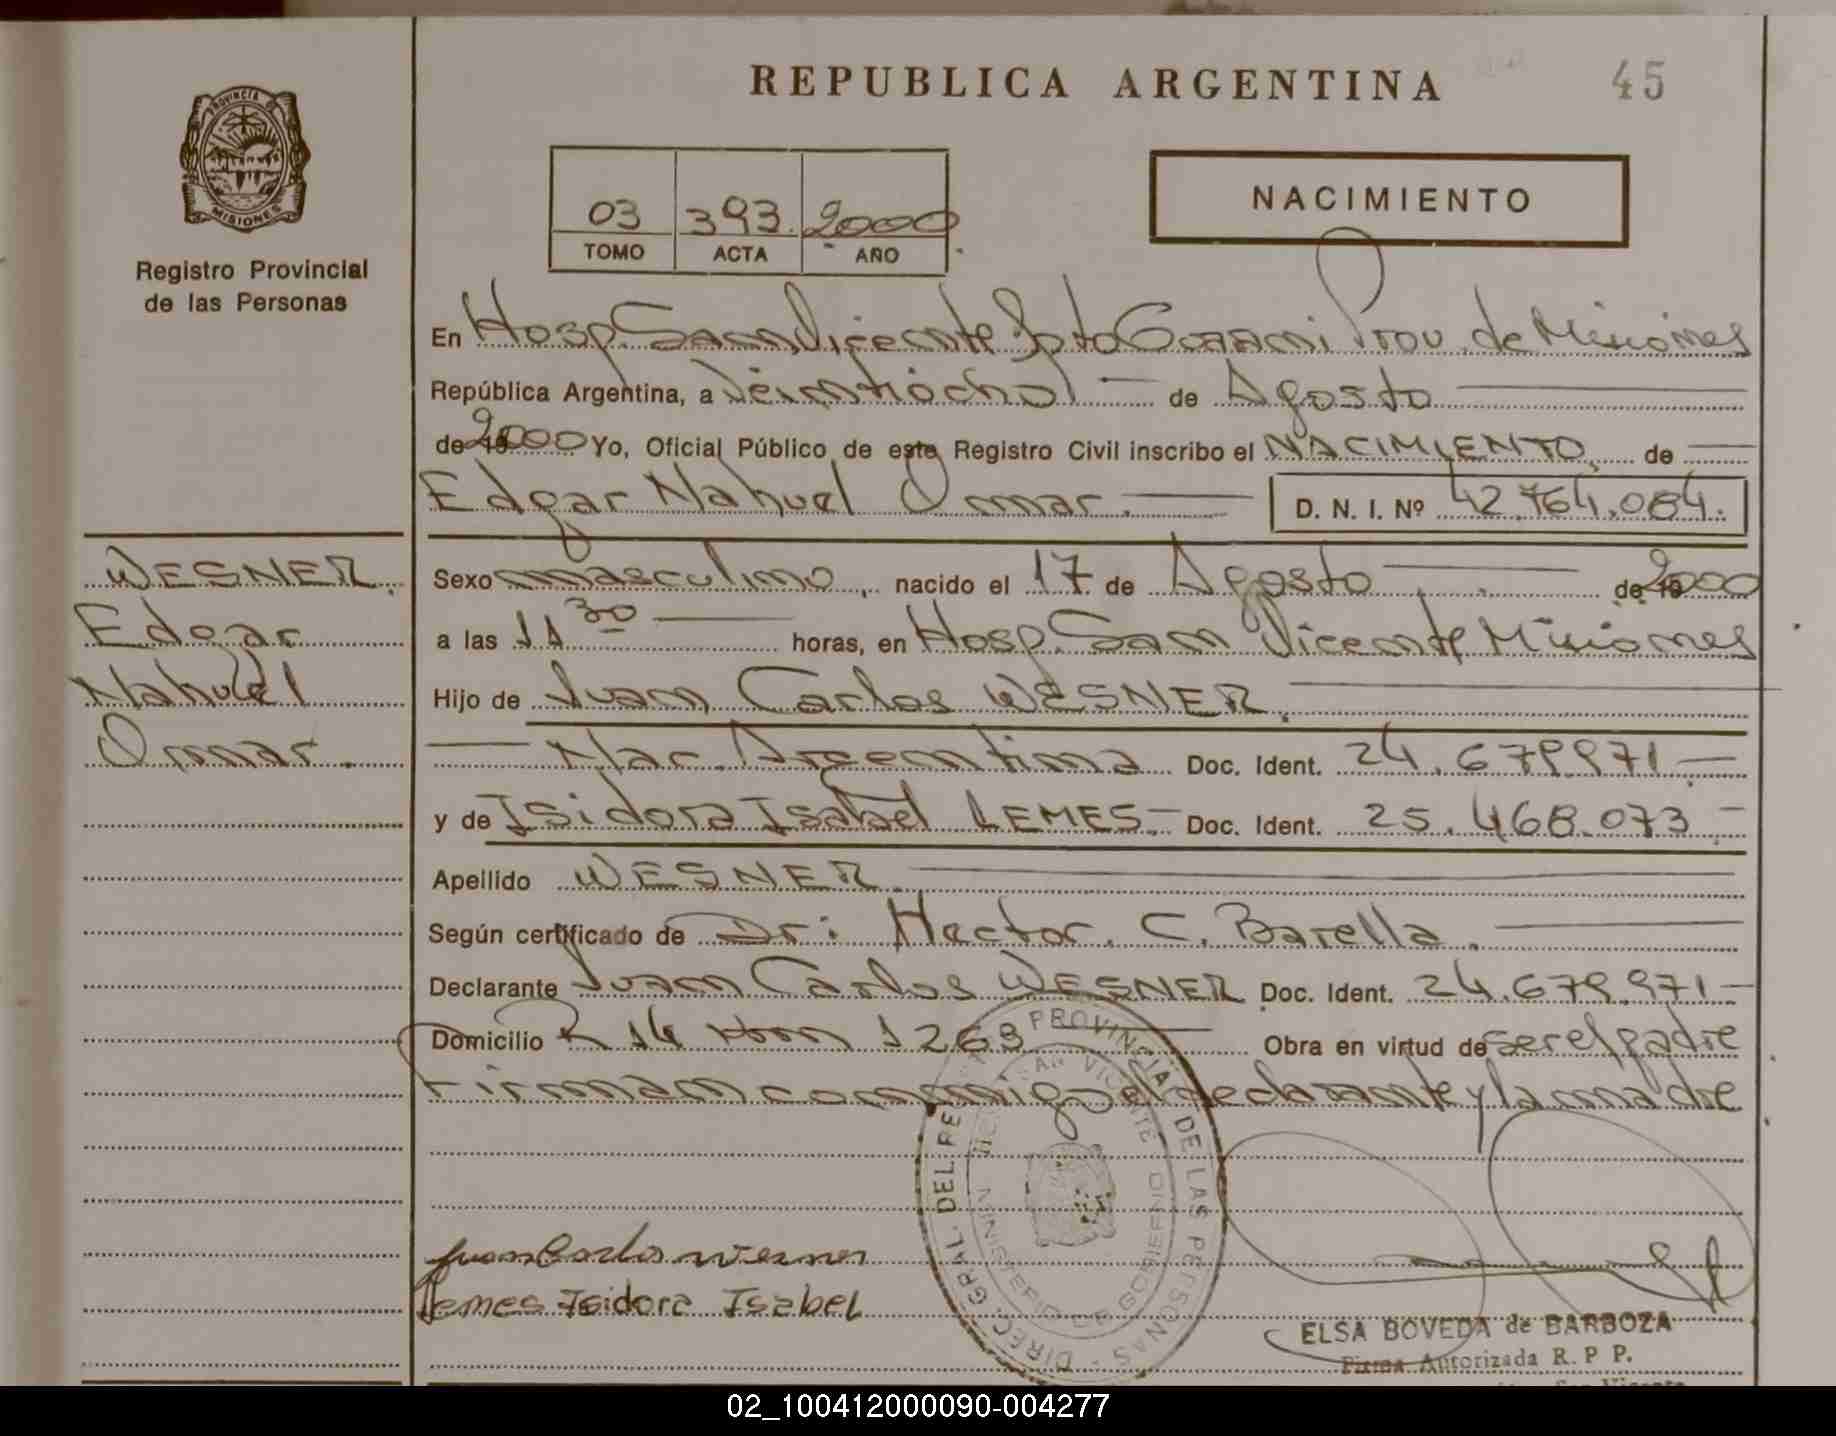 REPUBLICA ARGENTINA
45
PROVINCIA DE
MISIONES
Registro Provincial
de las Personas
03 393 2000
TOMO ACTA AÑO
NACIMIENTO
En Hosp. San Vicente Dpto Guarani Prov. de Misiones
República Argentina, a Veintiocho de Agosto
de 19 2000 Yo, Oficial Público de este Registro Civil inscribo el NACIMIENTO de
Edgar Nahuel Omar. D. N. I. Nº 42.764.084.
WESNER.
Edgar
Nahuel
Omar.
Sexo masculino, nacido el 17 de Agosto de 19 2000
a las 11 30 horas, en Hosp. San Vicente Misiones
Hijo de Juan Carlos WESNER.
Nac. Argentina Doc. Ident. 24.679.971
y de Isidora Isabel LEMES Doc. Ident. 25.468.073
Apellido WESNER.
Según certificado de Dr: Hector C. Barella.
Declarante Juan Carlos WESNER Doc. Ident. 24.679.971
Domicilio R 14 Km 1263 Obra en virtud de ser el padre
Firman conmigo el declarante y la madre
DIREC. GRAL. DEL REG. PROVINCIAL DE LAS PERSONAS
SAN VICENTE
MINISTERIO DE GOBIERNO
Juan Carlos Wesner
Lemes Isidora Isabel
ELSA BOVEDA de BARBOZA
Firma Autorizada R. P P.
02_100412000090-004277